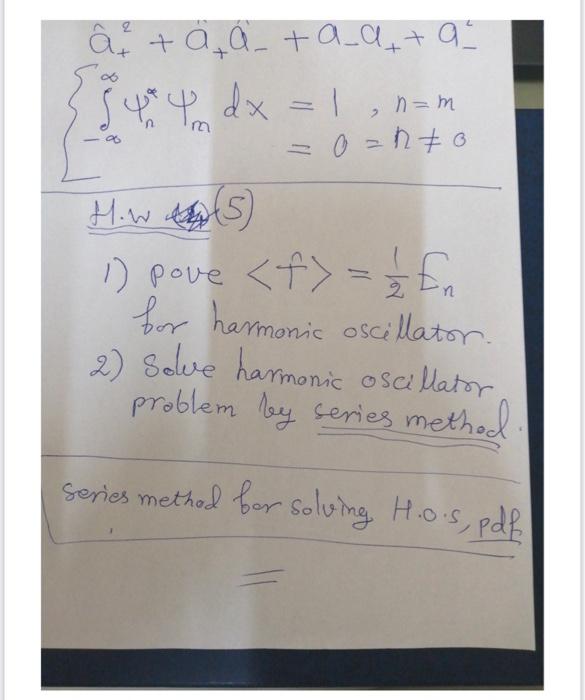 â₊² + â₊â₋ + a₋a₊ + a₋²
∫_{-∞}^{∞} ψₙ* ψₘ dx = 1 , n=m
= 0 = n ≠ 0
H.w (5)
1) pove <T̂> = 1/2 Eₙ
for harmonic oscillator.
2) Solve harmonic oscillator
problem by series method.
Series method for solving H.O.S, pdf